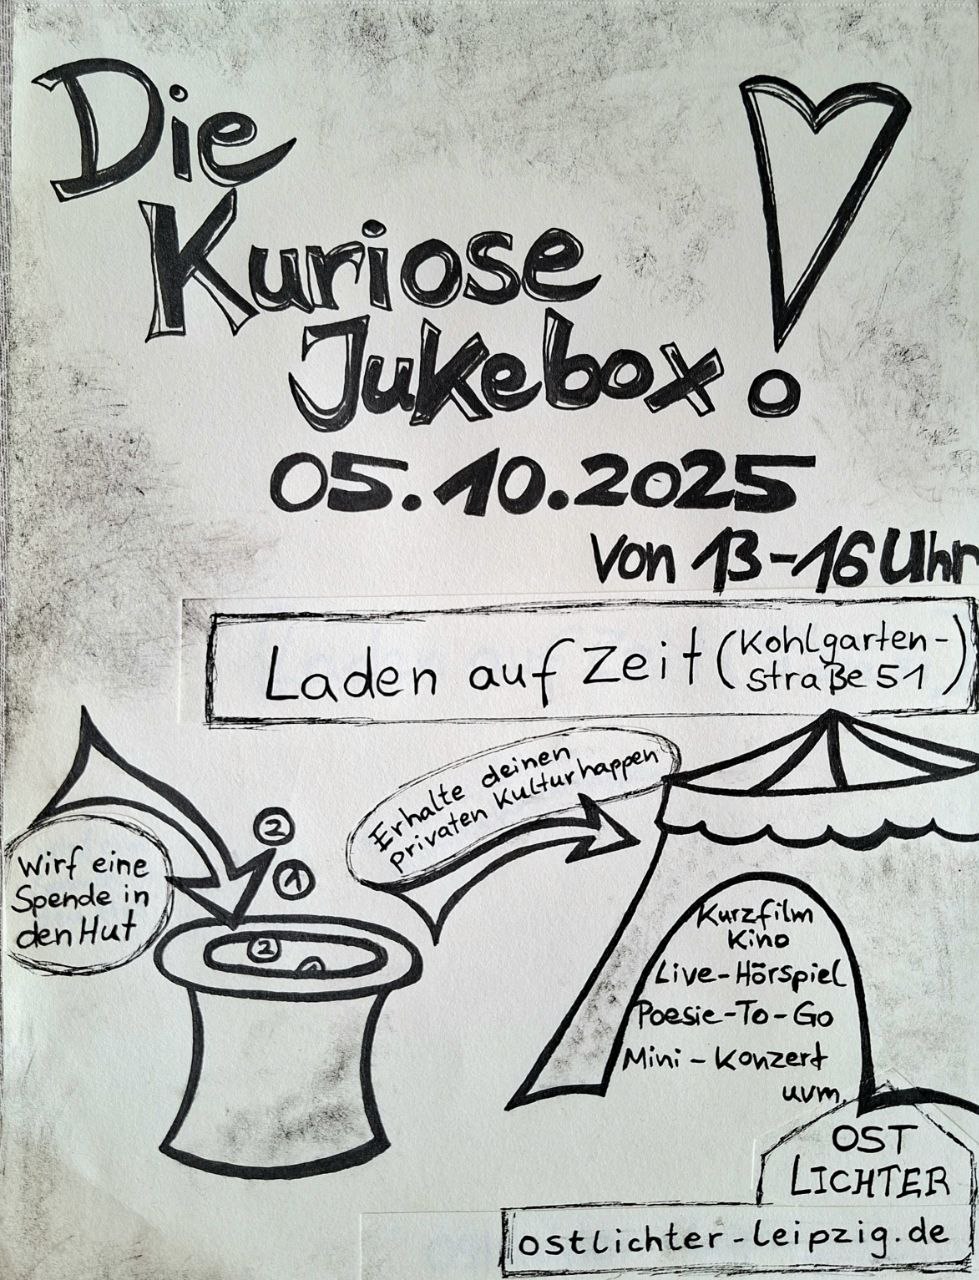 Die
Kuriose
Jukebox!
05.10.2025
von 13-16 Uhr
Laden auf Zeit (Kohlgarten-
straße 51)
Erhalte deinen
privaten Kulturhappen
Wirf eine
Spende in
den Hut
2
1
2
1
Kurzfilm
Kino
Live-Hörspiel
Poesie-To-Go
Mini-Konzert
uvm.
OST
LICHTER
ostlichter-leipzig.de